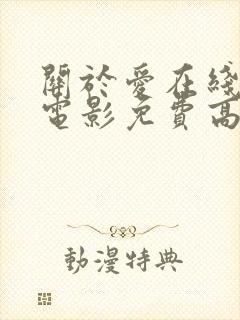 關於愛在綫
電影免費高
動漫特典